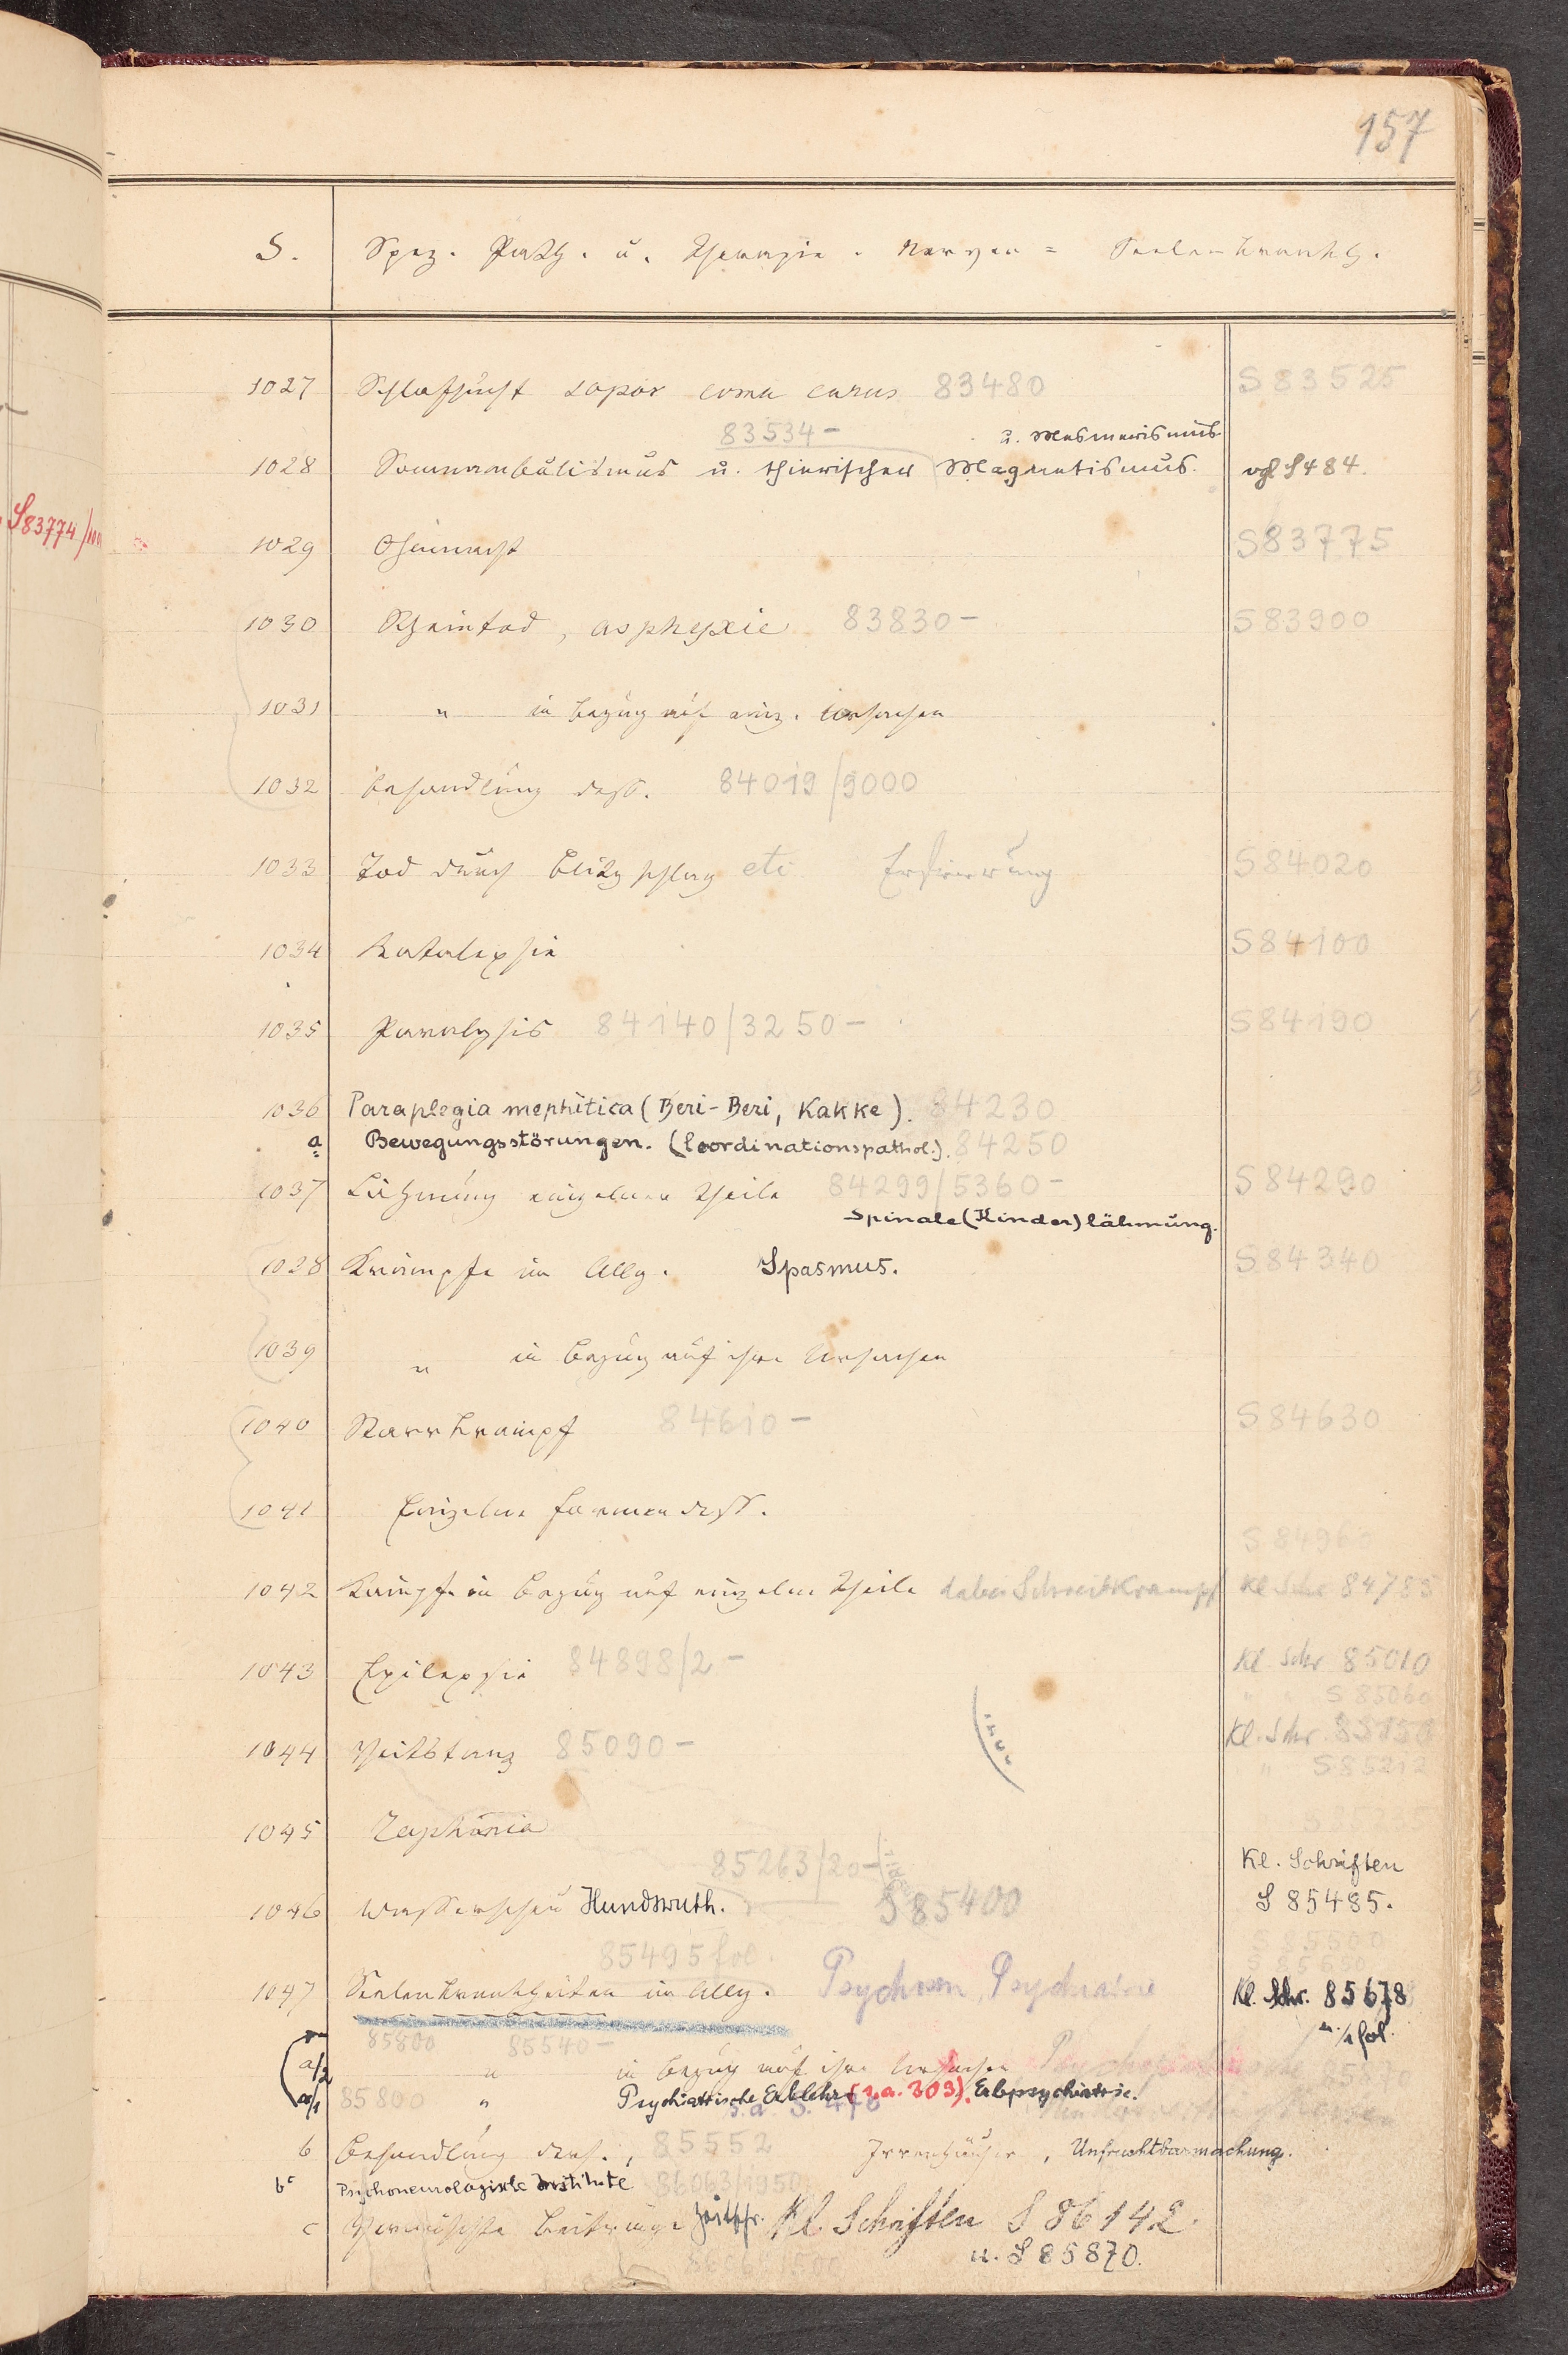 157
S. Spez. Path. u. Therapie. Nerven = Seelenkrankh.
1027 Schlafsucht sopor coma carus 83480 S 83525
83534 – u. Mesmerismus
1028 Somnambulismus u. thierischer Magnetismus. vgl S 484.
S83774
1029 Ohnmacht S83775
1030 Scheintod, asphyxie 83830 – S 83900
1031 " in Bezug auf einz. Ursachen
1032 Behandlung dess. 84019/9000
1033 Tod durch Blitzschlag etc Erfrierung S 84020
1034 Katalepsie S 84100
1035 Paralysis 84140/3250 – S 84190
1036 Paraplegia mephitica (Beri-Beri, Kakke). 84230
a Bewegungsstörungen. (Coordinationspathol.). 84250
1037 Lähmung einzelner Theile 84299/5360 – S 84290
Spinale (Kinder)lähmung.
1028 Krämpfe im Allg. Spasmus. S 84340
1039 " in Bezug auf ihre Ursachen
1040 Starrkrampf 84610 – S 84630
1041 Einzelne Formen dess.
S 8496
1042 Krämpfe in Bezug auf einzelne Theile dabei Schreibkrampf Kl Schr 84785
1043 Epilepsie 84898/2 – Kl. Schr 85010
" " S 85060
1044 Veitstanz 85090 – Kl. Schr. 85150
" S 85212
1045 Raphania
85263/20 – Kl. Schriften
1046 Wasserscheu Hundswuth. S 85400 S 85485.
85495 fol. S 85500
S 85650
1047 Seelenkrankheiten im Allg. Psychosen, Psychiatrie Kl. Schr. 85678
85800 85540 – u. ½ fol.
a/2 " in Bezug auf ihre Ursachen
a/1 85800 " Psychiatrische Erblehre (s.a. 303). Erbpsychiatrie.
s. a. S. 478
b Behandlung ders., 85552 Irrenhäuser, Unfruchtbarmachung.
b' Psychoneurologische Institute 86063/1950
c Vermischte Beiträge Zeitschr. Kl. Schriften S 86142.
u. S 85870.